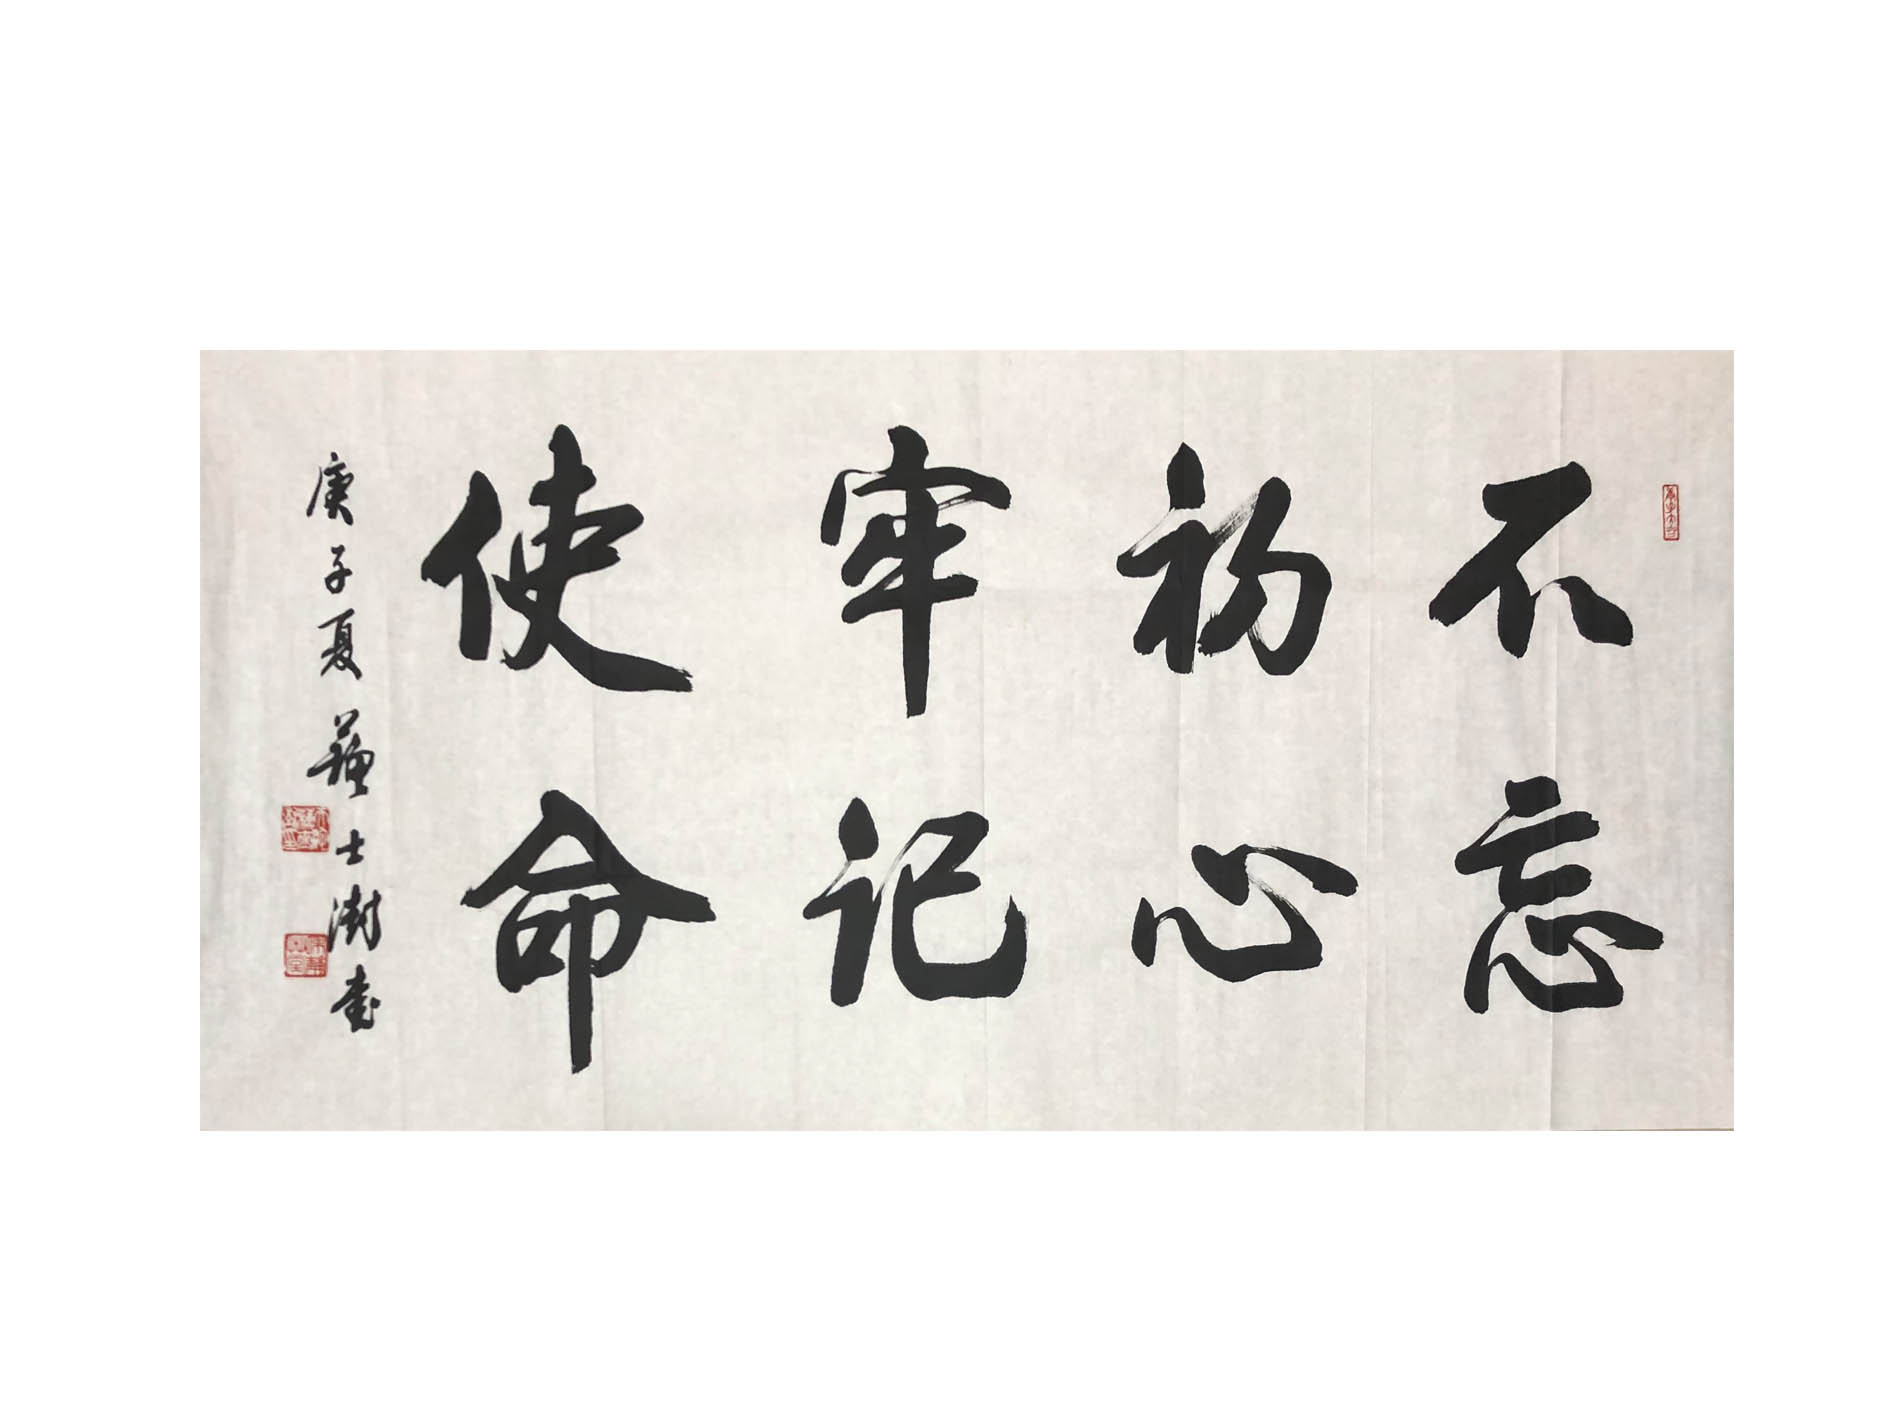 不忘
初心
牢记
使命
庚子夏苏士澍书